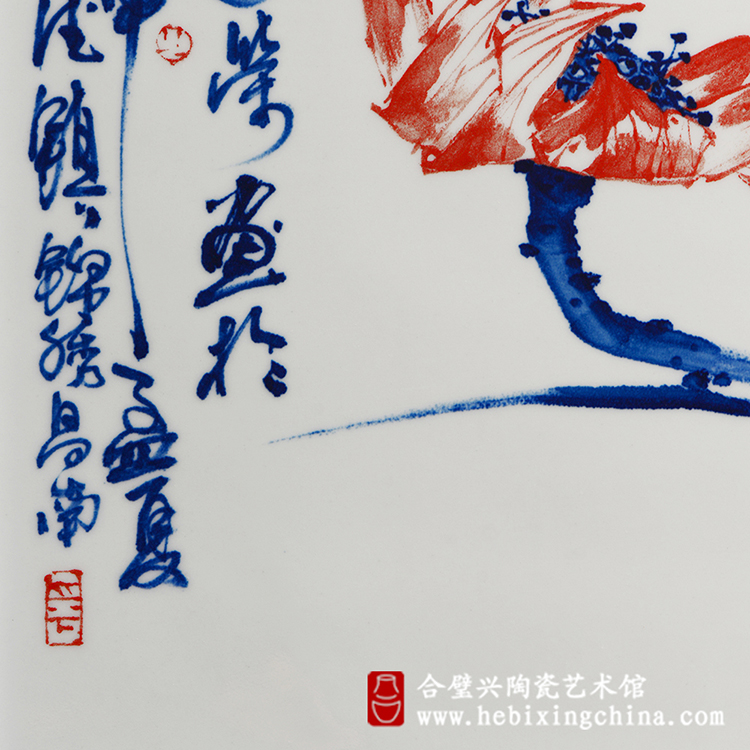 荣画於
申孟夏
德镇锦绣昌南
合璧兴陶瓷艺术馆
www.hebixingchina.com